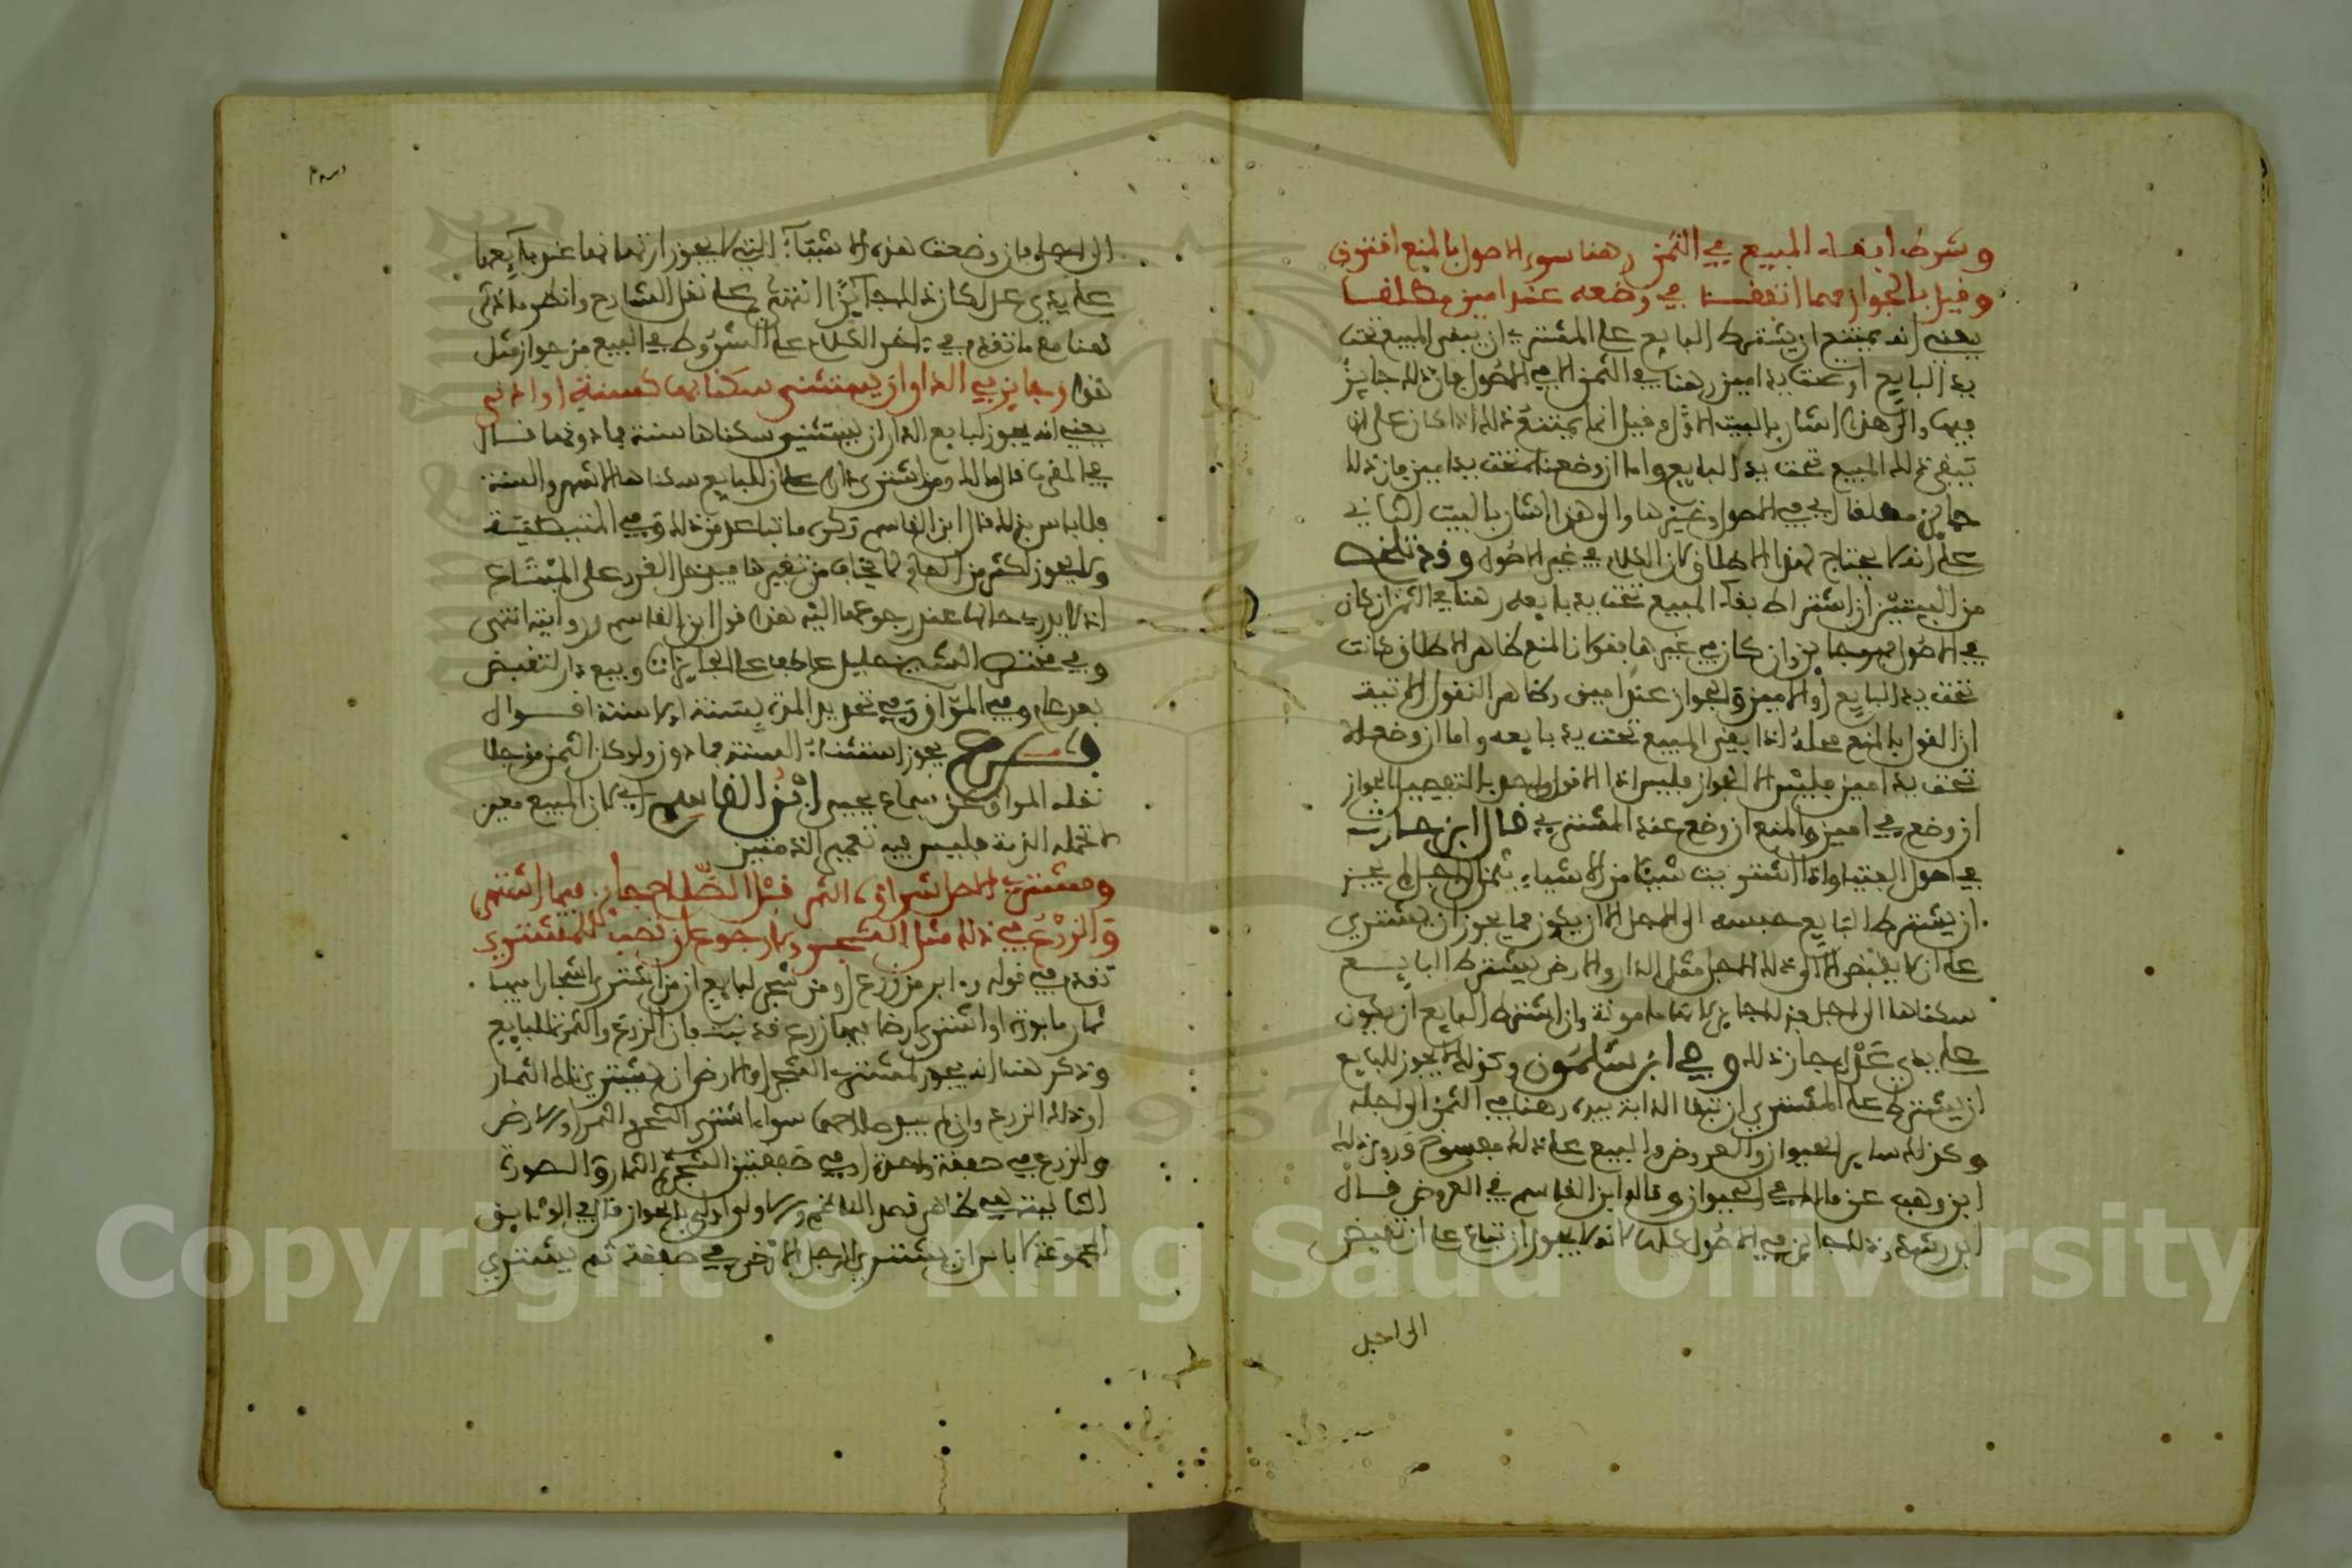 وشرط ابقاء المبيع في الثمن رهنا سوى الاصول بالمنع اقترن
وقيل بالجواز مهما اتفقا في وضعه عند امين مطلقا
يعني انه يمتنع ان يشترط البايع على المشتري ان يبقى المبيع تحت
يد البايع او تحت يد امين رهنا في الثمن الا في الاصول فان ذلك جايز
فيها والى هذا اشار بالبيت الاول وقيل انما يمتنع ذلك اذا كان على ان
يبقى ذلك المبيع تحت يد البايع واما ان وضعناه تحت يد امين فان ذلك
جايز مطلقا اي في الاصول وغيرها والى هذا اشار بالبيت الثاني
على انه لا يحتاج لهذا الاطلاق لان الكلام في غير الاصول وقد تلخص
من البيتين ان اشتراط بقاء المبيع تحت يد بايعه رهنا في الثمن ان كان
في الاصول فهو جايز وان كان في غيرها فقولان المنع ظاهر الاطلاق كانت
تحت يد البايع او الامين والجواز عند امين وظاهر النقول الاتية
ان القول بالمنع محله اذا بقي المبيع تحت يد بايعه واما ان وضع
تحت يد امين فليس الا الجواز فليس اذا الا قول واحد بالتفصيل الجواز
ان وضع في امين والمنع ان وضع عند المشتري قال ابن حارث
في اصول الفتيا واذا اشتريت شيئا من الاشياء بثمن الى اجل لم يجز
ان يشترط البايع حبسه الى الاجل الا ان يكون مما يجوز ان يشترى
على ان لا يقبض الا الى ذلك الاجل مثل الدار والارض يشترط البايع
سكناها الى اجل فذلك جايز لانها مامونة وان اشترط البايع ان يكون
على يدي عدل جاز ذلك وفي ابن سلمون وكذلك لا يجوز للبايع
ان يشترط على المشتري ان تبقى الدابة بيده رهنا في الثمن الى اجله
وكذلك ساير الحيوان والعروض والبيع على ذلك مفسوخ وروى ذلك
ابن وهب عن مالك في الحيوان وقاله ابن القاسم في العروض قال
ابن رشد وذلك جايز في الاصول كلها لانه يجوز ان تباع على ان تقبض
الى اجل
الى اجل فان وضعت هذه الاشياء التي لا يجوز ارتهانها عند بايعها
على يدي عدل كان ذلك جايزا انتهى على نقل الشارح وانظر ما ذكر
هنا مع ما تقدم في اخر الكلام على الشروط في البيع من جواز مثل
هذا وجايز في الدار ان يستثنى سكنى بها كسنة او ادنى
يعني انه يجوز لبايع الدار ان يستثني سكناها سنة فما دونها قال
في المقرب قال مالك ومن اشترى دارا على ان للبايع سكناها الاشهر والسنة
فلا باس بذلك قال ابن القاسم وكره ما تباعد من ذلك وفي المتيطية
ولا يجوز اكثر من العام لما يخاف من تغيرها فيدخل الغرر على المبتاع
اذ لا يدري حالها عند رجوعها اليه هذا قول ابن القاسم وروايته انتهى
وفي مختصر الشيخ خليل عاطفا على الجايزات وبيع دار لتقبض
بعد عام وفي المواق وفي تحديد المدة بسنة ستة اقوال
فرع يجوز استثناء السنة فما دون ولو كان الثمن موجلا
نقله المواق عن سماع يحيى ابن القاسم اي لان المبيع معين
لا تحمله الذمة فليس فيه تعمير الذمتين
ومشتري الاصل شراؤه الثمر قبل الصلاح جايز فيما اشتهر
والزرع في ذلك مثل الشجر ولا رجوع ان تصب للمشتري
تقدم في قوله وما ابر من زرع او من شجر لبايع ان من اشترى اشجارا فيها
ثمار مابورة او اشترى ارضا فيها زرع قد نبت فان الزرع والثمرة للبايع
وذكر هنا انه يجوز لمشتري الشجر او الارض ان يشتري تلك الثمار
او ذلك الزرع وان لم يبد صلاحها سواء اشترى الشجر والثمر او الارض
والزرع في صفقة واحدة او في صفقتين الشجر ثم الثمار والصورة
الثانية هي ظاهر قصد الناظم والاولى اولى بالجواز قال في الوثايق
المجموعة لا باس ان يشتري الرجل الارض في صفقة ثم يشتري